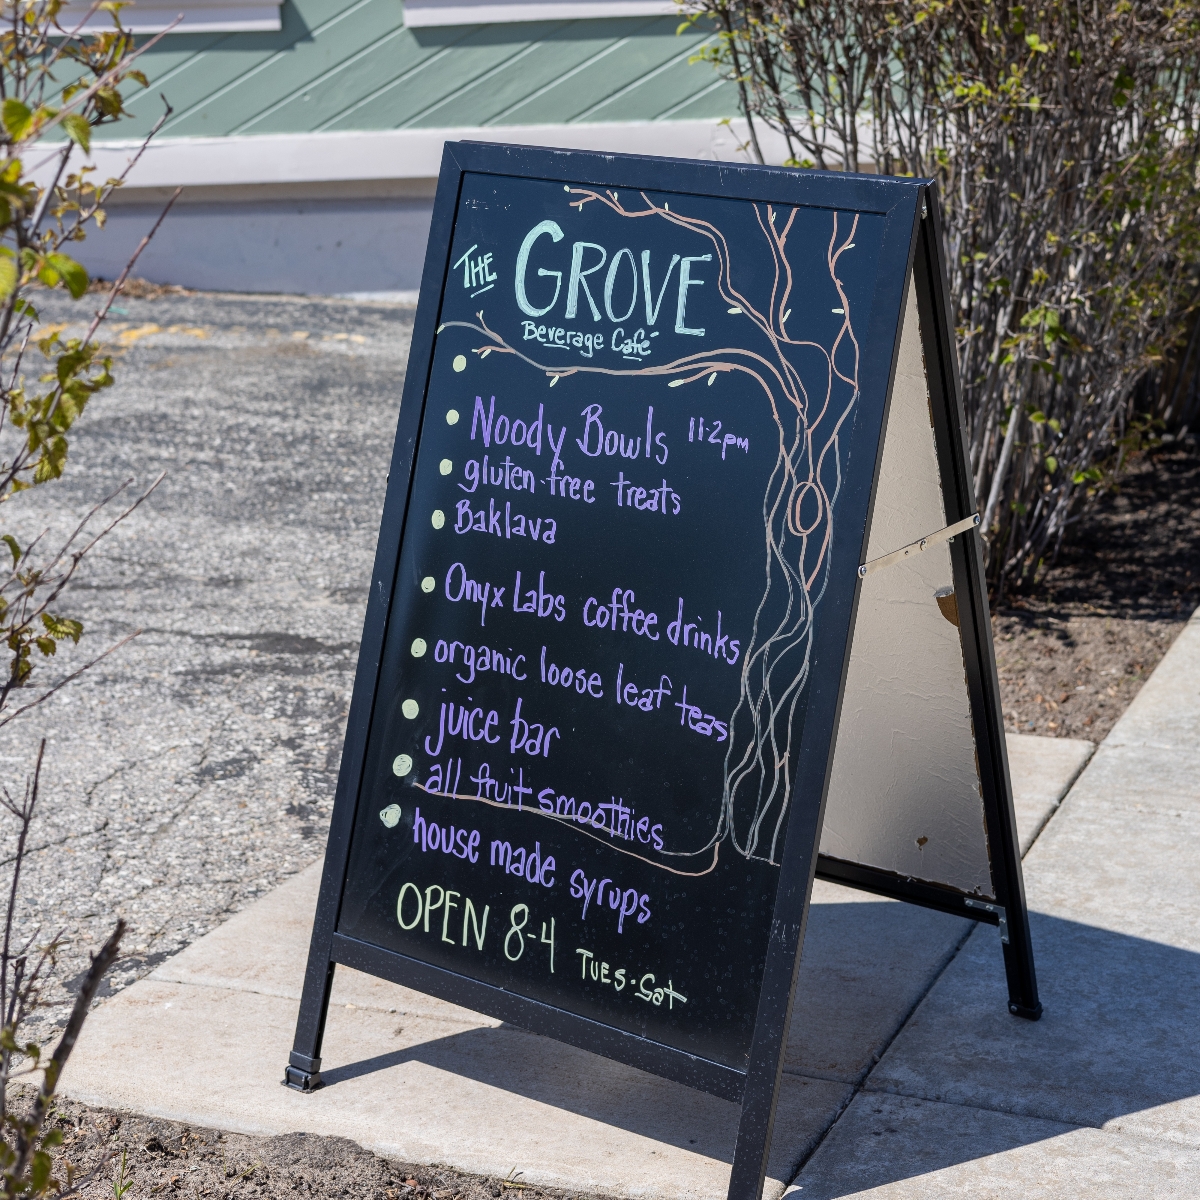 THE GROVE
Beverage Café
Noody Bowls 11-2pm
gluten-free treats
Baklava
Onyx Labs coffee drinks
organic loose leaf teas
juice bar
all fruit smoothies
house made syrups
OPEN 8-4 TUES-Sat